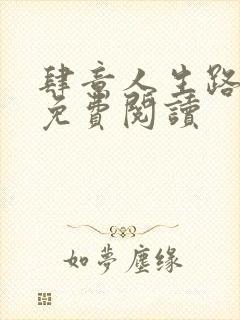 肆意人生路
免費閱讀
如夢塵缘